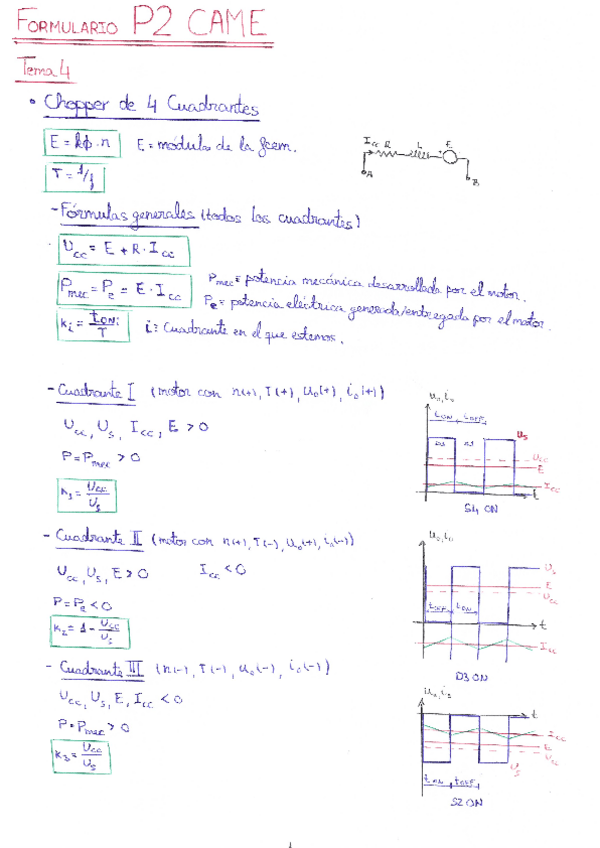 FORMULARIO P2 CAME
Tema 4
• Chopper de 4 Cuadrantes
E = kϕ·n   E = módulo de la fcem.
T = 1/f
Icc R L E
A B
- Fórmulas generales (todos los cuadrantes)
Ucc = E + R·Icc
Pmec = Pe = E·Icc
Pmec = potencia mecánica desarrollada por el motor.
Pe = potencia eléctrica generada/entregada por el motor.
ki = tONi/T   i: Cuadrante en el que estemos.
- Cuadrante I (motor con n(+), T(+), Uo(+), io(+))
Ucc, Us, Icc, E > 0
P = Pmec > 0
K1 = Ucc/Us
Uo, io
tON tOFF
Us
Ucc
E
Icc
t
S4 ON
- Cuadrante II (motor con n(+), T(-), Uo(+), io(-))
Ucc, Us, E > 0   Icc < 0
P = Pe < 0
K2 = 1 - Ucc/Us
Uo, io
Us
E
Ucc
tOFF tON
t
Icc
D3 ON
- Cuadrante III (n(-), T(-), uo(-), io(-))
Ucc, Us, E, Icc < 0
P = Pmec > 0
K3 = Ucc/Us
t
Icc
E
Ucc
Us
tON tOFF
S2 ON